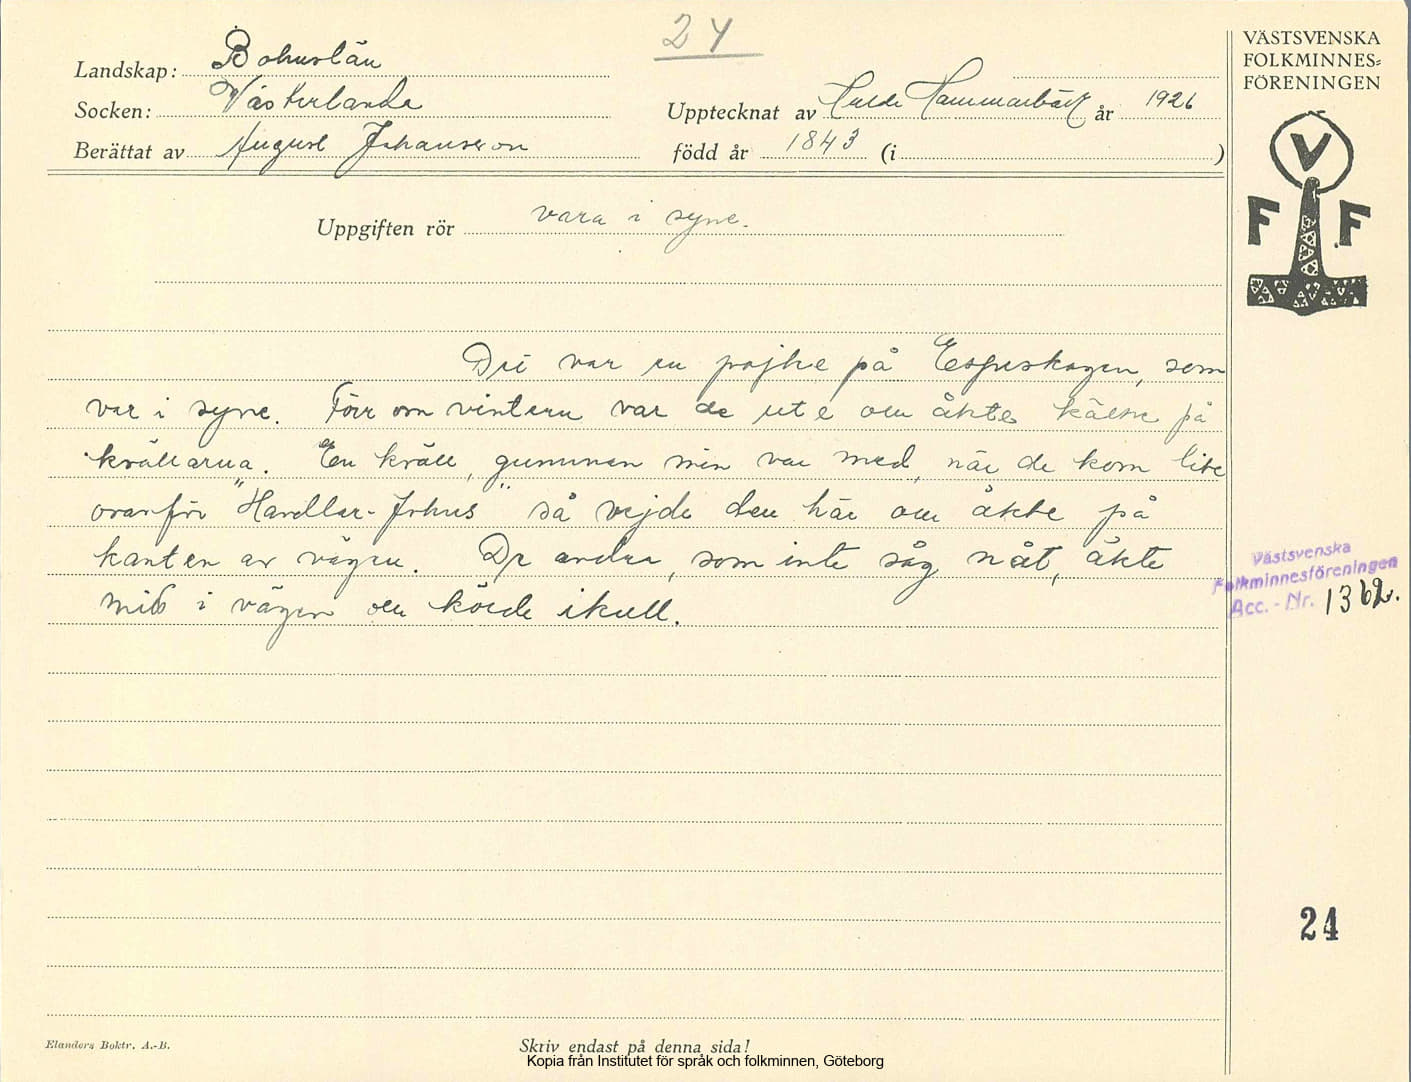 24
Landskap: Bohuslän
Socken: Västerlanda
Berättat av August Johansson
Upptecknat av Hulda Hammarbäck år 1926
född år 1843 (i )
VÄSTSVENSKA
FOLKMINNES=
FÖRENINGEN
V
F F
Uppgiften rör vara i syne.
Det var en pojke på Espeskogen, som
var i syne. Förr om vintern var de ute och åkte kälke på
kvällarna. En kväll, gumman min var med, när de kom lite
ovanför "Handlar-Johus" så vejde den här och åkte på
kanten av vägen. De andra, som inte såg nåt, åkte
mitt i vägen och körde ikull.
Västsvenska
Folkminnesföreningen
Acc. - Nr. 1362.
24
Elanders Boktr. A.-B.
Skriv endast på denna sida!
Kopia från Institutet för språk och folkminnen, Göteborg